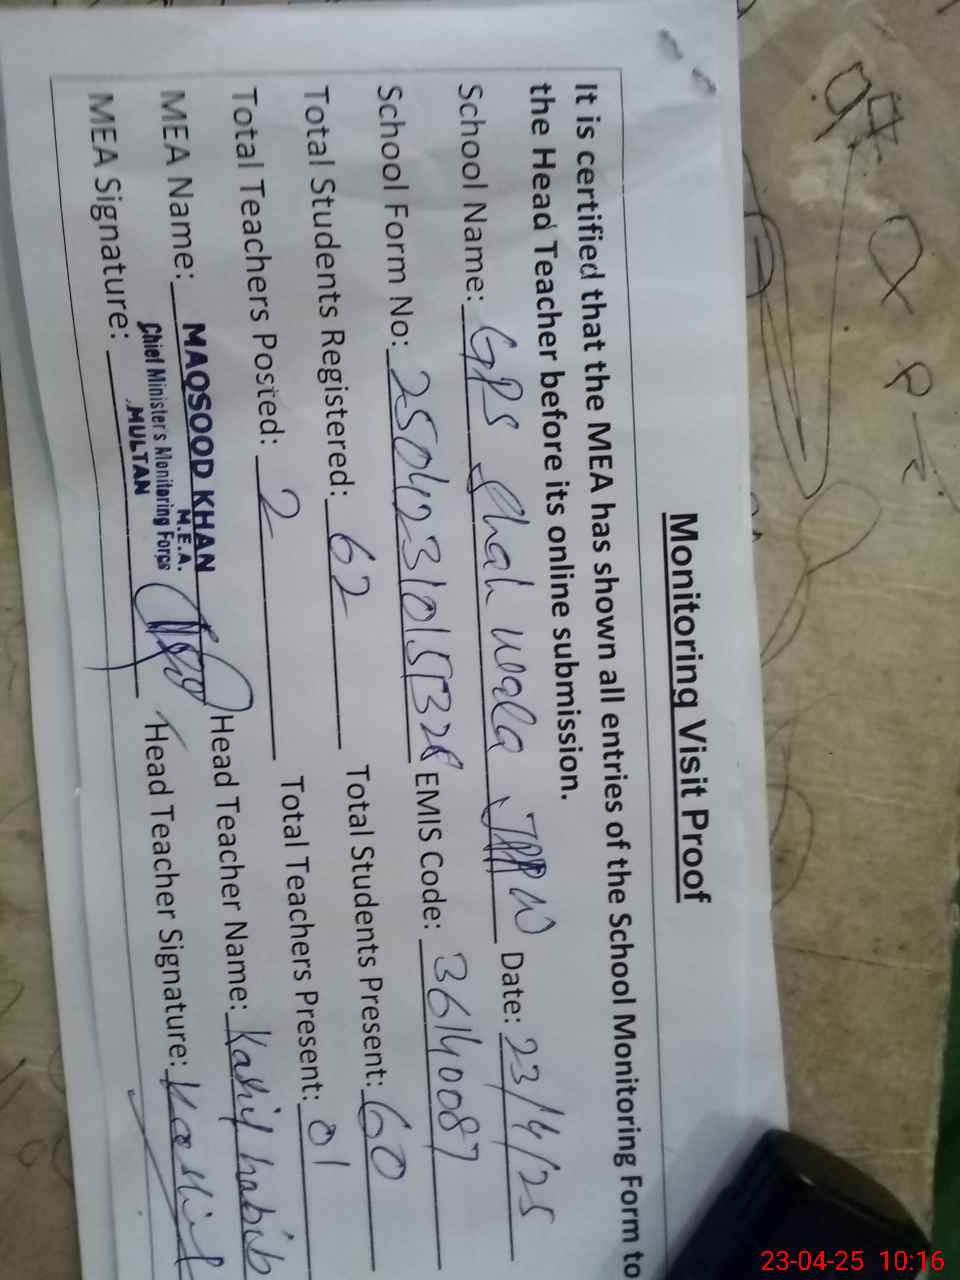 Monitoring Visit Proof
It is certified that the MEA has shown all entries of the School Monitoring Form to
the Head Teacher before its online submission.
School Name: GPS Shah wala JPPW Date: 23/4/25
School Form No: EMIS Code: 36140087
Total Students Registered: 62 Total Students Present: 60
Total Teachers Posted: 2 Total Teachers Present: 01
MEA Name: MAQSOOD KHAN Head Teacher Name: Kashif habib
M.E.A.
Chief Minister's Monitoring Force
MULTAN
MEA Signature: Head Teacher Signature: Kashif
23-04-25 10:16